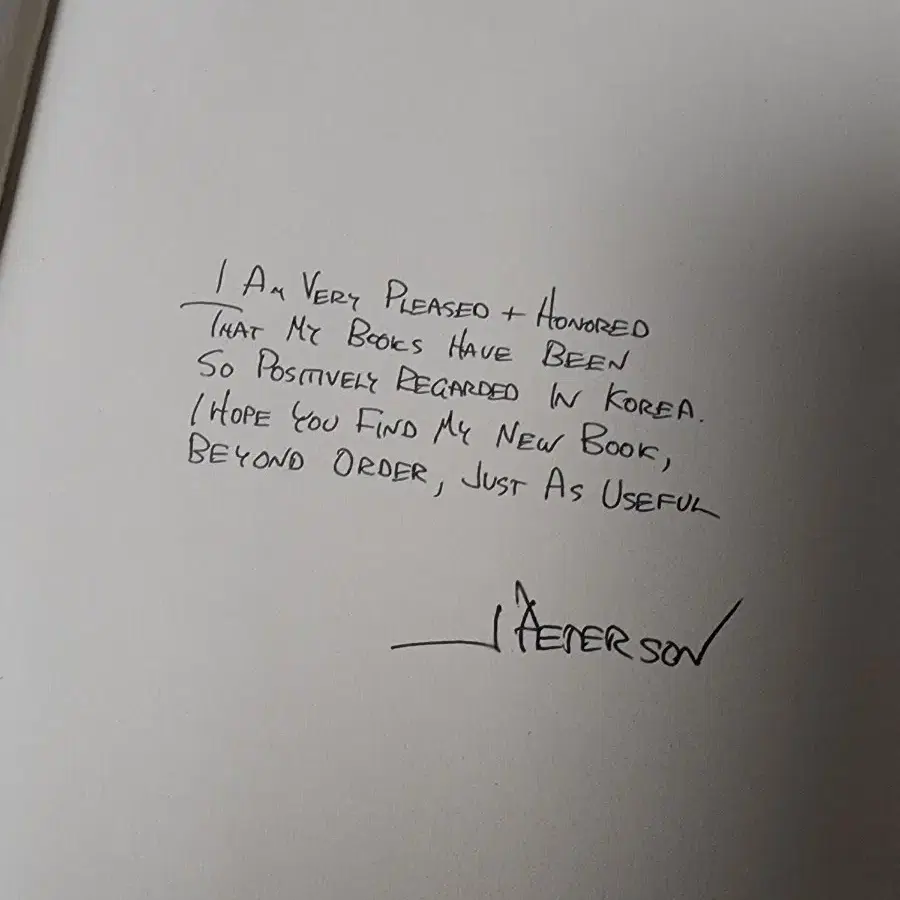 I AM VERY PLEASED + HONORED
THAT MY BOOKS HAVE BEEN
SO POSITIVELY REGARDED IN KOREA.
I HOPE YOU FIND MY NEW BOOK,
BEYOND ORDER, JUST AS USEFUL
J PETERSON